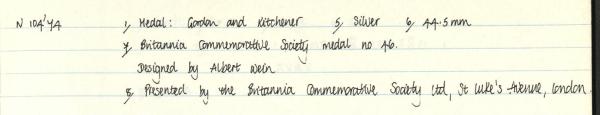 N 104'74 1, Medal: Gordon and Kitchener 5, Silver 6, 44.5mm
7, Britannia Commemorative Society medal no 46.
Designed by Albert Wein
8, Presented by the Britannia Commemorative Society Ltd, St Luke's Avenue, London.